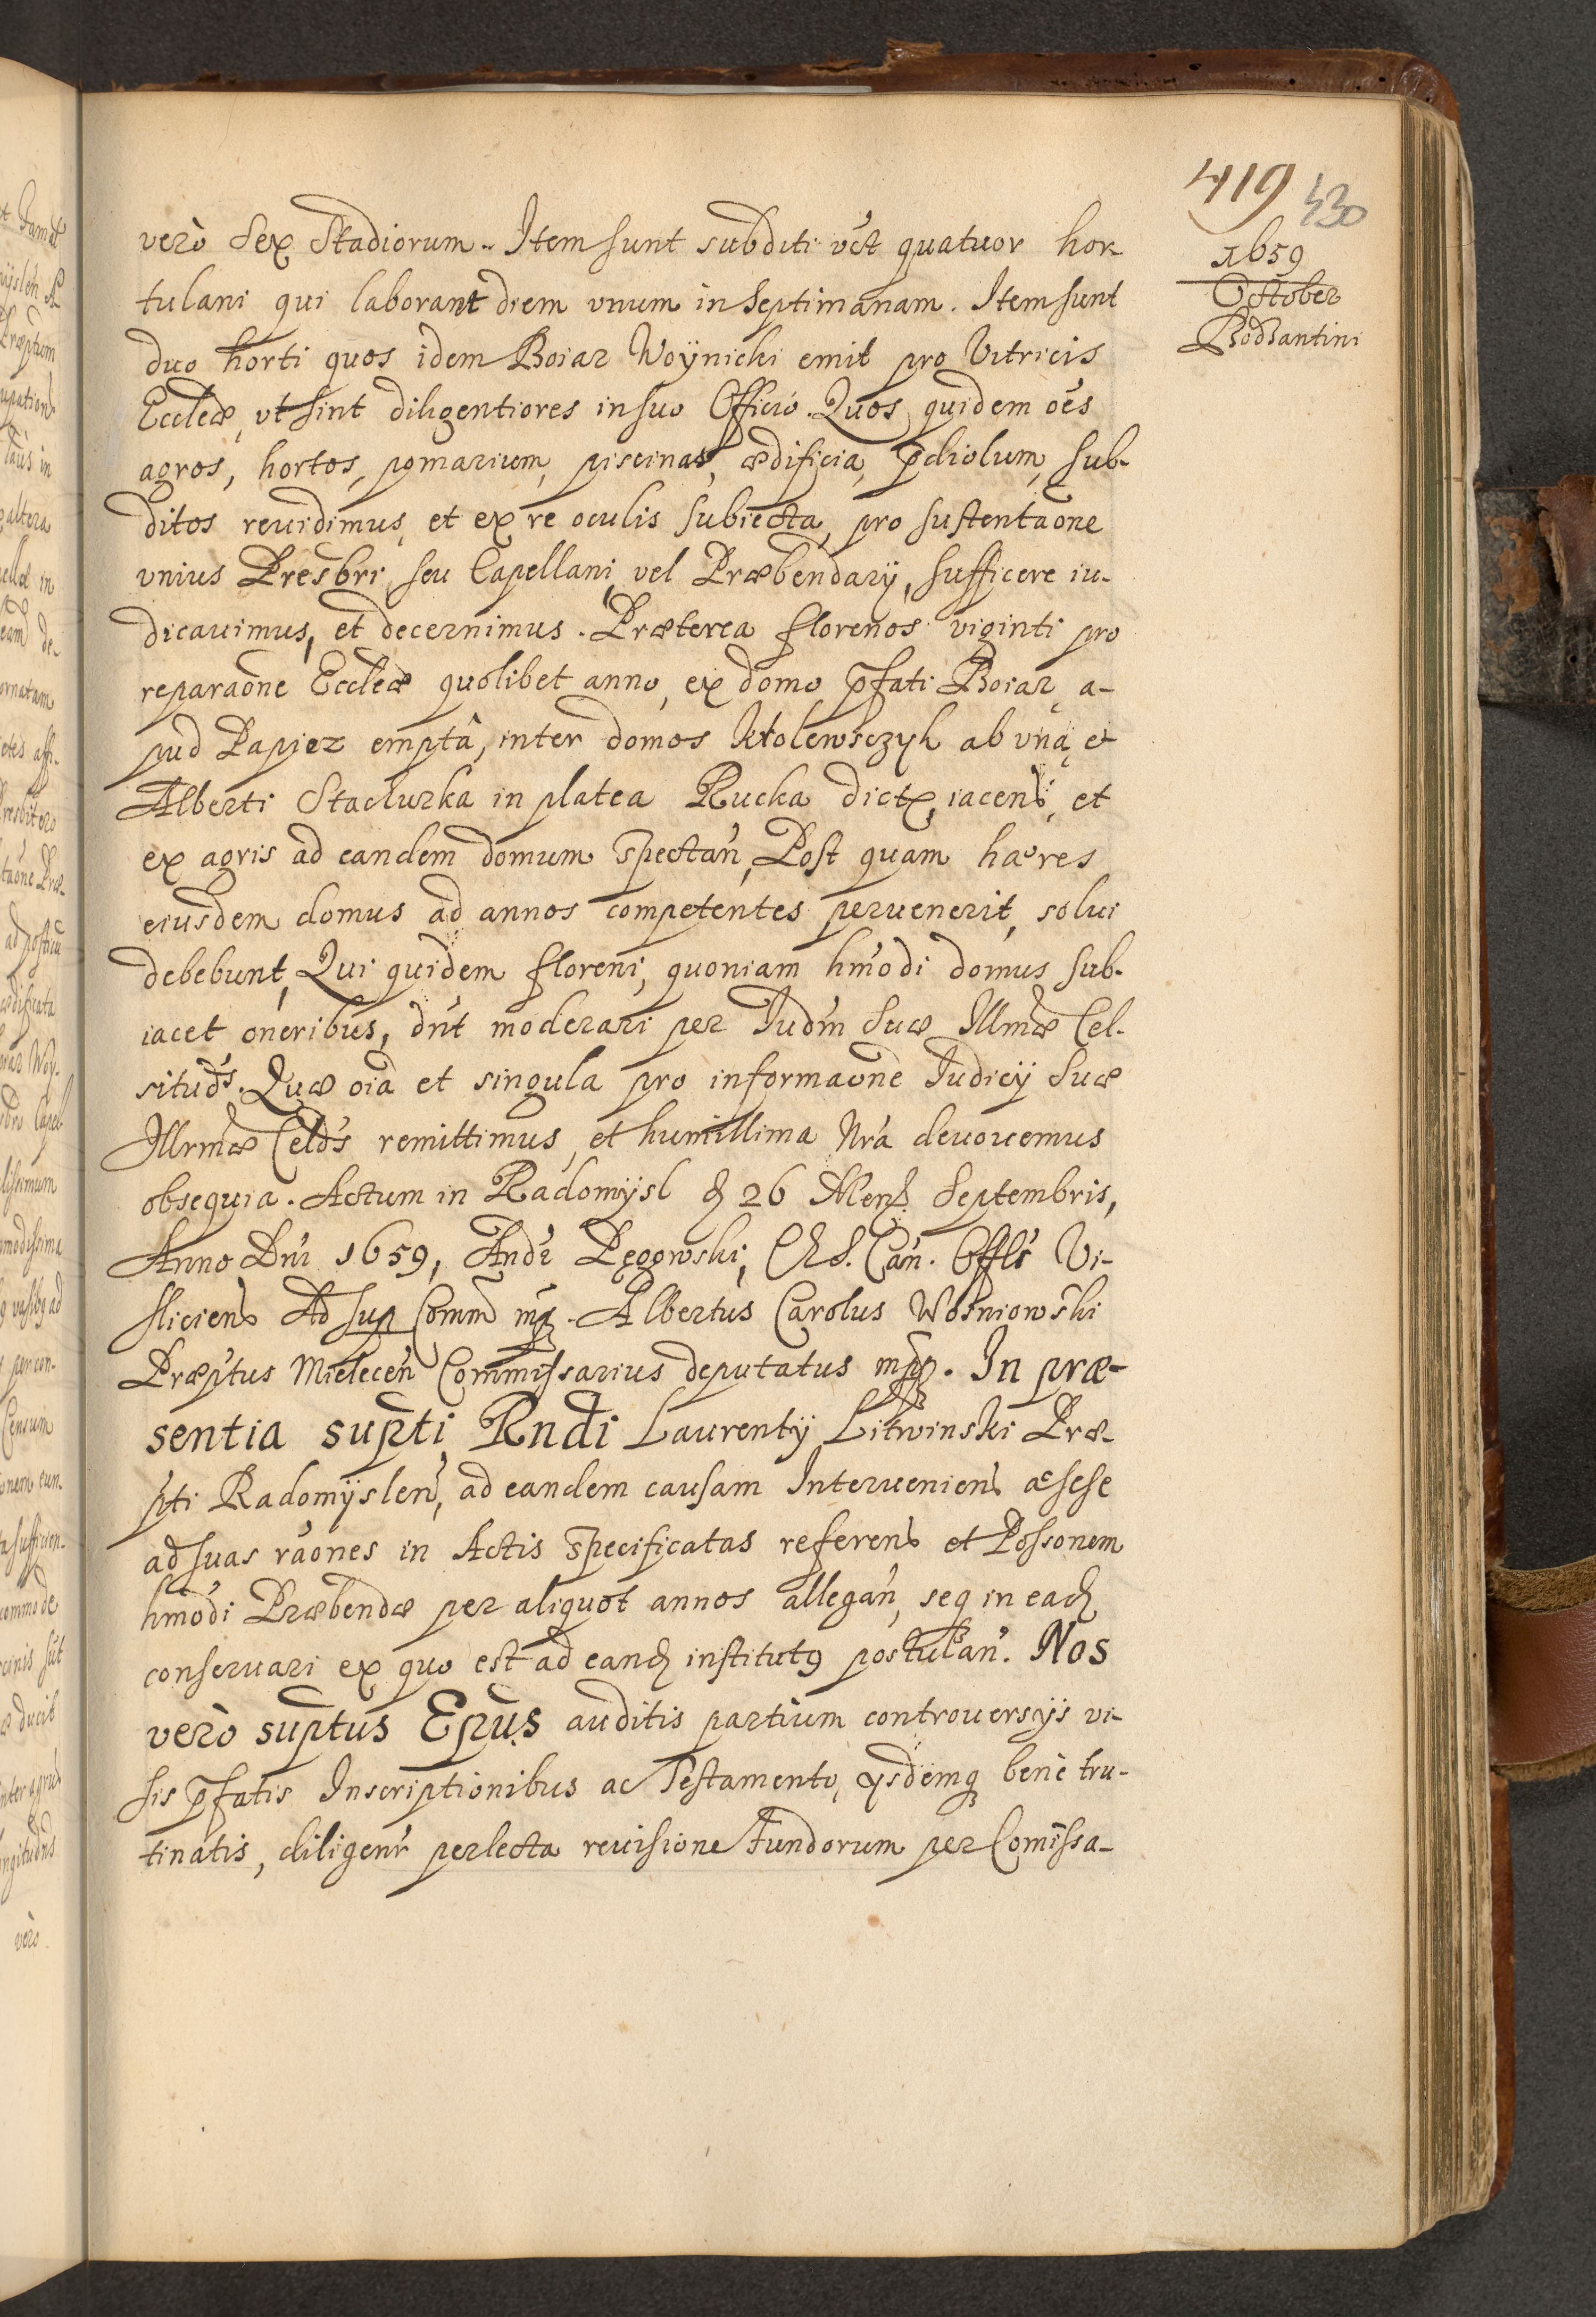 419 430
1659
October
Bodzantini
verò Sex Stadiorum. Item sunt subditi vc̃t quatuor hor-
tulani qui laborant diem vnum in Septimanam. Item sunt
duo horti quos idem Boiar Woÿnicki emit pro Vitricis
Eccleæ, vt sint diligentiores in suo Officio. Quos quidem oẽs
agros, hortos, pomarium, piscinas, ædificia, p̃diolum, sub-
ditos reuidimus, et ex re oculis subiecta, pro sustentaõne
vnius Presbri, seu Capellani, vel Præbendarÿ, sufficere iu-
dicauimus, et decernimus. Præterea florenos viginti pro
reparaõne Eccleæ quolibet anno, ex domo p̃fati Boiar, a-
pud Papiez emptâ, inter domos Krolewsczyk ab vna, et
Alberti Stachurka in platea Rucka dicta, iacen̄, et
ex agris ad eandem domum spectan̄, Post quam hæres
eiusdem domus ad annos competentes peruenerit, solui
debebunt, Qui quidem floreni, quoniam hm̃odi domus sub-
iacet oneribus, dñt moderari per Iudm̃ Suæ Illmæ Cel-
situd̃s. Quæ oĩa et singula pro informaõne Iudicÿ Suæ
Illrmæ Celd̃s remittimus, et humillima Nr̃a deuouemus
obsequia. Actum in Radomÿsl d 26 Mens Septembris,
Anno Dñi 1659, Andr Pęgowski, Can̄. Offls̃ Vi-
slicien̄ Ad sup Comm mp. Albertus Carolus Wosniowski
Præptus Mielecen̄ Commissarius deputatus mpp. In præ-
sentia sup̃ti Rndi Laurentÿ Litwinski Præ-
pti Radomÿslen̄, ad eandem causam Interuenien̄ ac sese
ad suas raõnes in Actis specificatas referen̄ et Possonem
hm̃odi Præbendæ per aliquot annos allegan̄, seq in ead
conseruari ex quo est ad eand institutq postulan̄. Nos
verò sup̃tus Ep̃us auditis partium controuersÿs vi-
sis p̃fatis Inscriptionibus ac Testamento, ÿsdemq bene tru-
tinatis, diligenr̃ perlecta reuisione Fundorum per Comissa-
verò